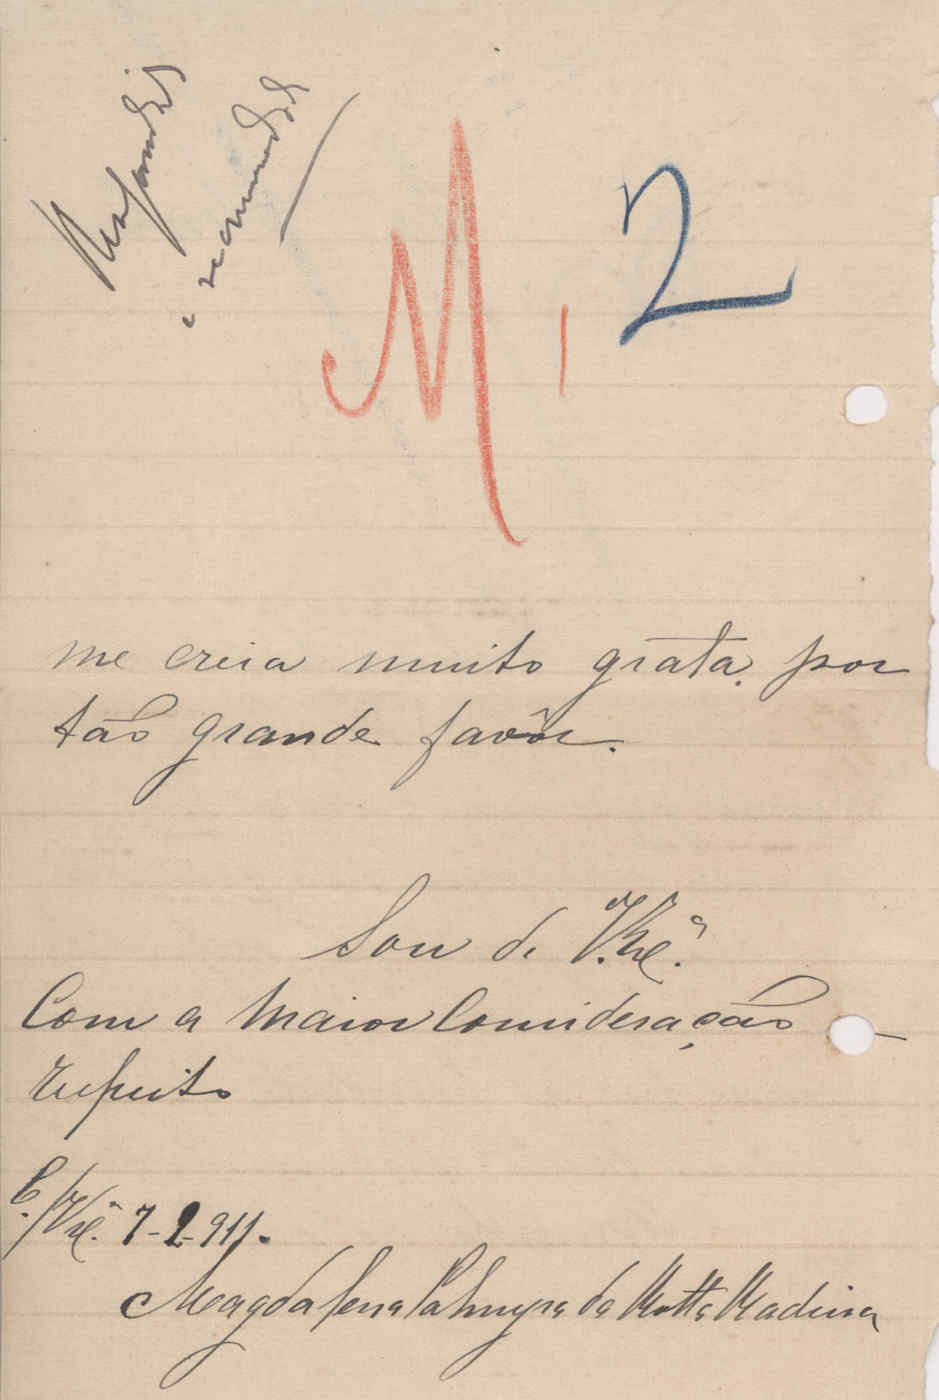 M. 2
me creia muito grata por
tão grande favôr.
Sou de V. Exª.
Com a Maior Consideração
respeito
7-2-911.
Magdalena Palmyra da Motta Madeira